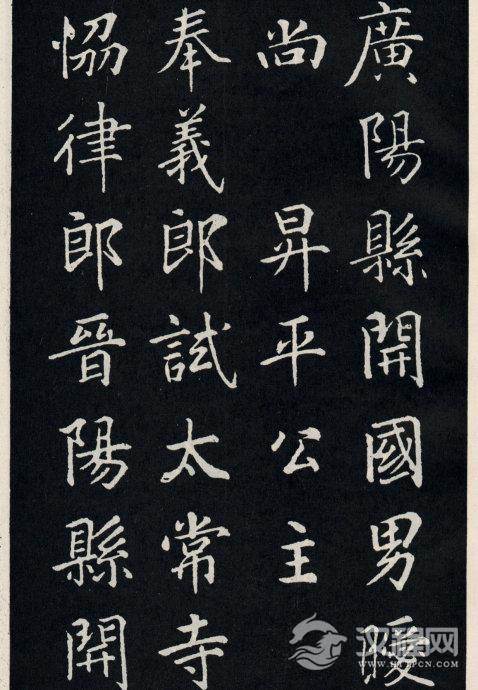 廣陽縣開國男曖
尚 昇平公主
奉義郎試太常寺
協律郎晉陽縣開
汉程网
WWW.HTTPCN.COM